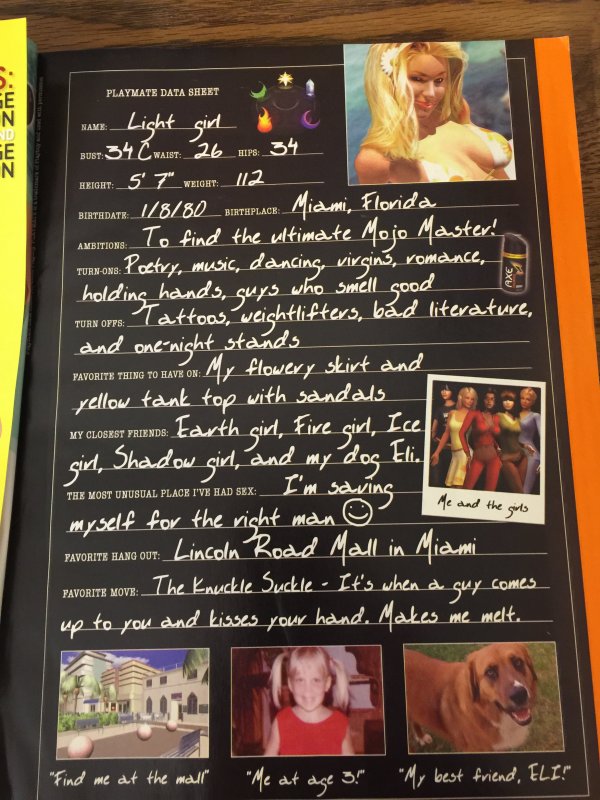 S:
GE
ON
ND
GE
ON
PLAYMATE DATA SHEET
NAME: Light girl
BUST: 34 C WAIST: 26 HIPS: 34
HEIGHT: 5' 7" WEIGHT: 112
BIRTHDATE: 1/8/80 BIRTHPLACE: Miami, Florida
AMBITIONS: To find the ultimate Mojo Master!
TURN-ONS: Poetry, music, dancing, virgins, romance,
holding hands, guys who smell good
AXE
TURN OFFS: Tattoos, weightlifters, bad literature,
and one-night stands
FAVORITE THING TO HAVE ON: My flowery skirt and
yellow tank top with sandals
MY CLOSEST FRIENDS: Earth girl, Fire girl, Ice
girl, Shadow girl, and my dog Eli.
THE MOST UNUSUAL PLACE I'VE HAD SEX: I'm saving
myself for the right man ☺
Me and the girls
FAVORITE HANG OUT: Lincoln Road Mall in Miami
FAVORITE MOVE: The Knuckle Suckle - It's when a guy comes
up to you and kisses your hand. Makes me melt.
"Find me at the mall" "Me at age 3!" "My best friend, ELI!"